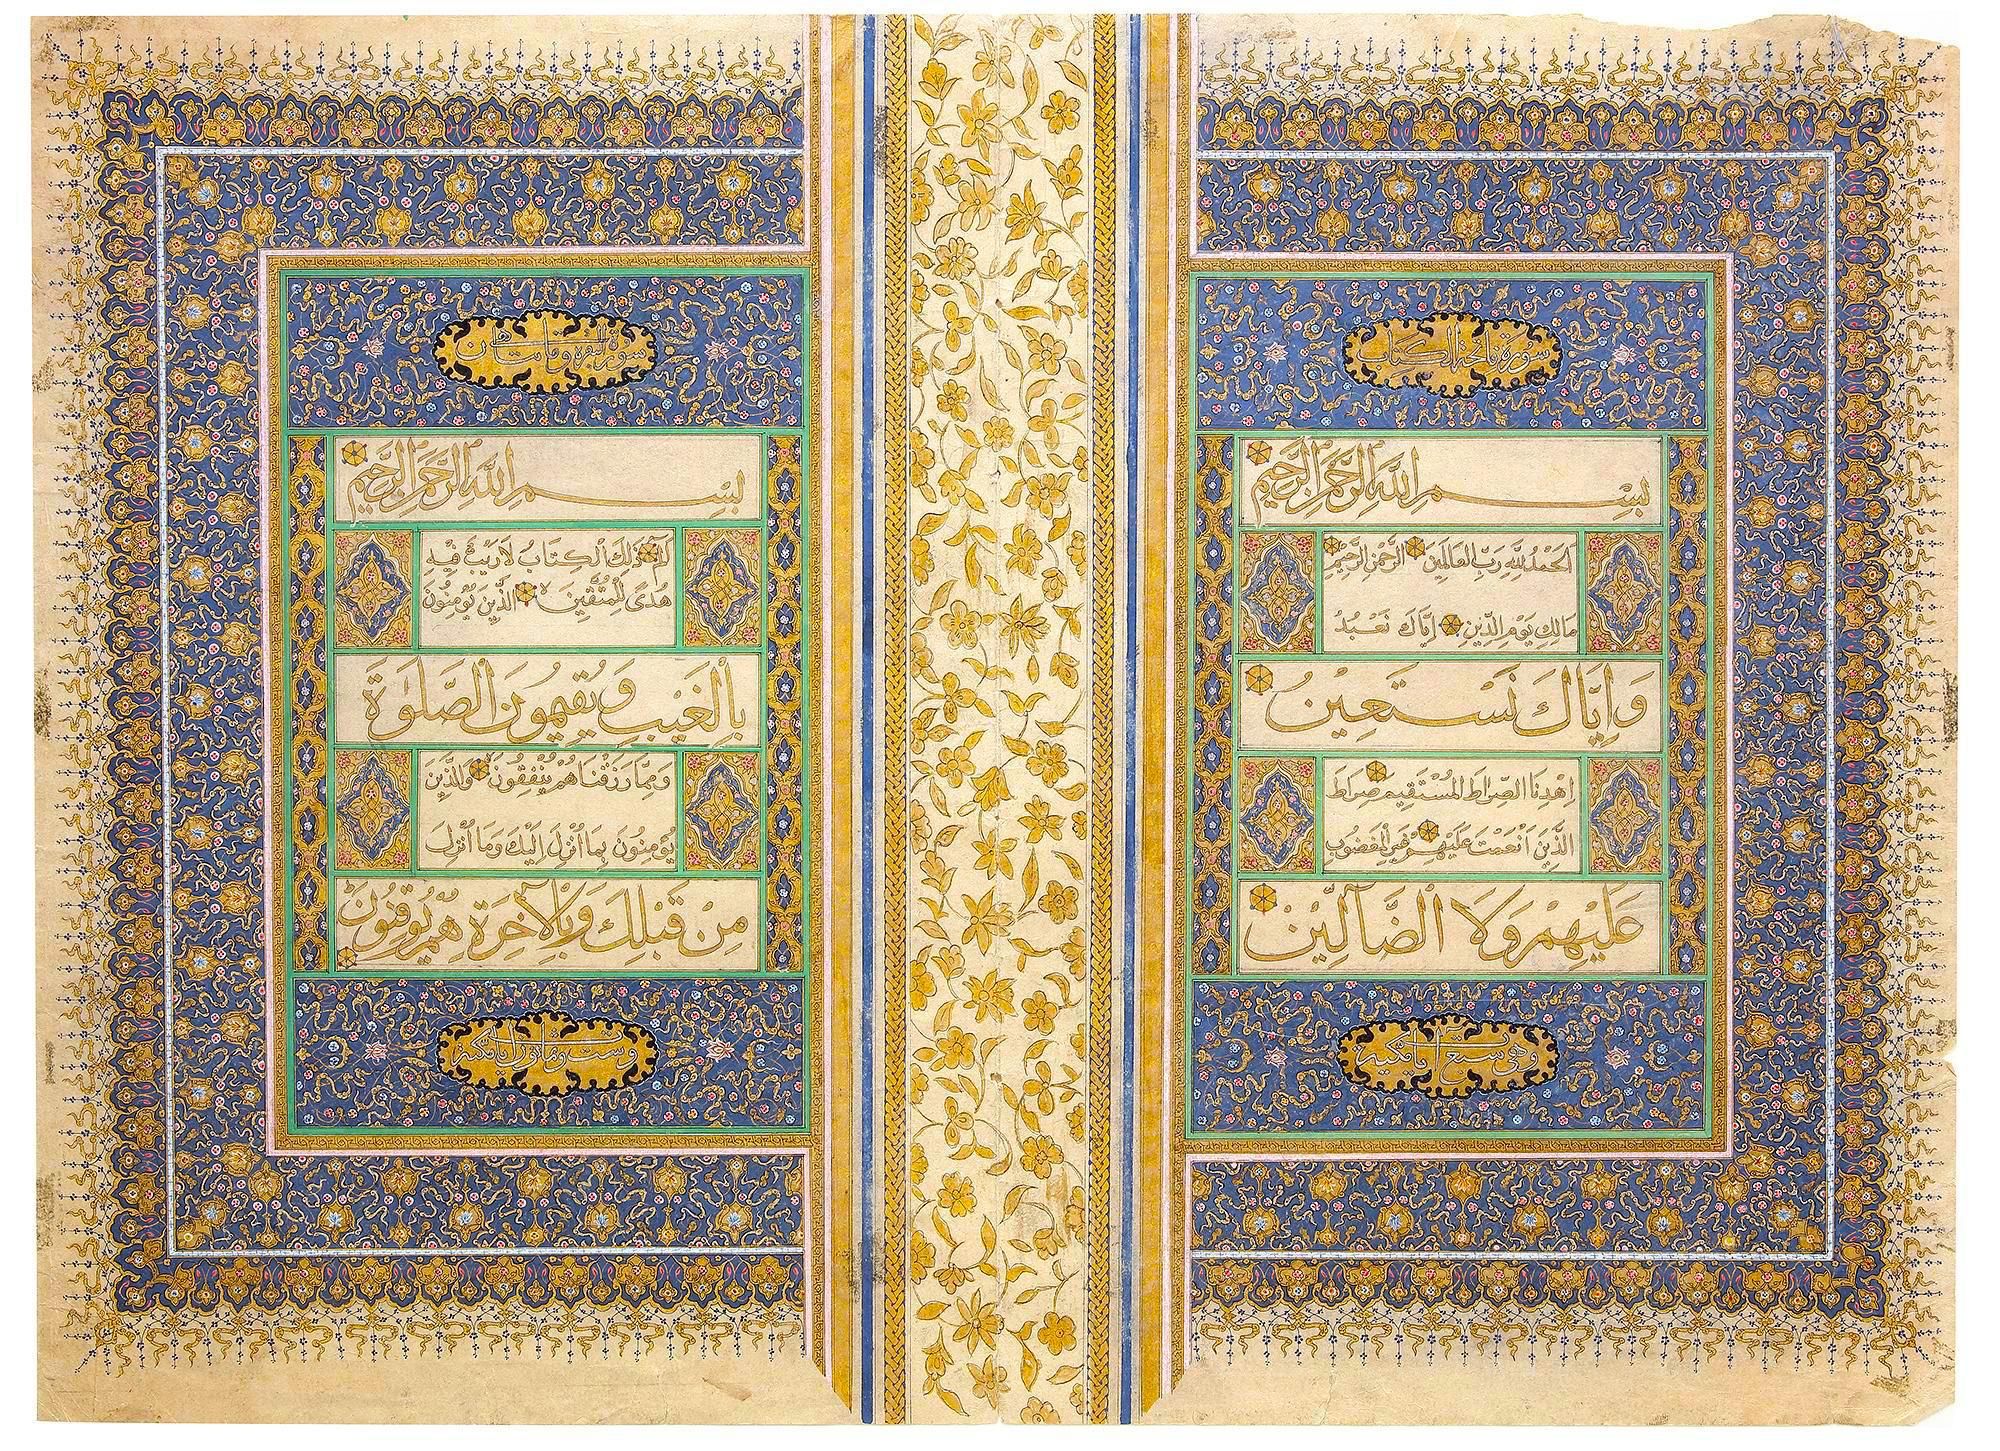 سورة فاتحة الكتاب
بِسْمِ اللَّهِ الرَّحْمَنِ الرَّحِيمِ
الحَمْدُ لِلَّهِ رَبِّ العَالَمِينَ الرَّحْمٰنِ الرَّحِيْمِ
مَالِكِ يَوْمِ الدِّينِ اِيَّاكَ نَعْبُدُ
وَاِيَّاكَ نَسْتَعِيْنُ
اِهْدِنَا الصِّرَاطَ المُسْتَقِيمَ صِرَاطَ
الَّذِينَ اَنْعَمْتَ عَلَيْهِمْ غَيْرِ المَغْضُوبِ
عَلَيْهِمْ وَلَا الضَّآلِّينَ
وهى سبع آيات مكية
سورة البقرة وهى مائتان
بِسْمِ اللَّهِ الرَّحْمَنِ الرَّحِيمِ
الٓمٓ ذَلِكَ الْكِتَابُ لَا رَيْبَ فِيْهِ
هُدًى لِلْمُتَّقِينَ الَّذِينَ يُؤْمِنُونَ
بِالْغَيْبِ وَيُقِيمُونَ الصَّلٰوةَ
وَمِمَّا رَزَقْنَاهُمْ يُنْفِقُونَ وَالَّذِينَ
يُؤْمِنُونَ بِمَا اُنْزِلَ اِلَيْكَ وَمَا اُنْزِلَ
مِنْ قَبْلِكَ وَبِالْاٰخِرَةِ هُمْ يُوقِنُونَ
وست وثمانون آيات